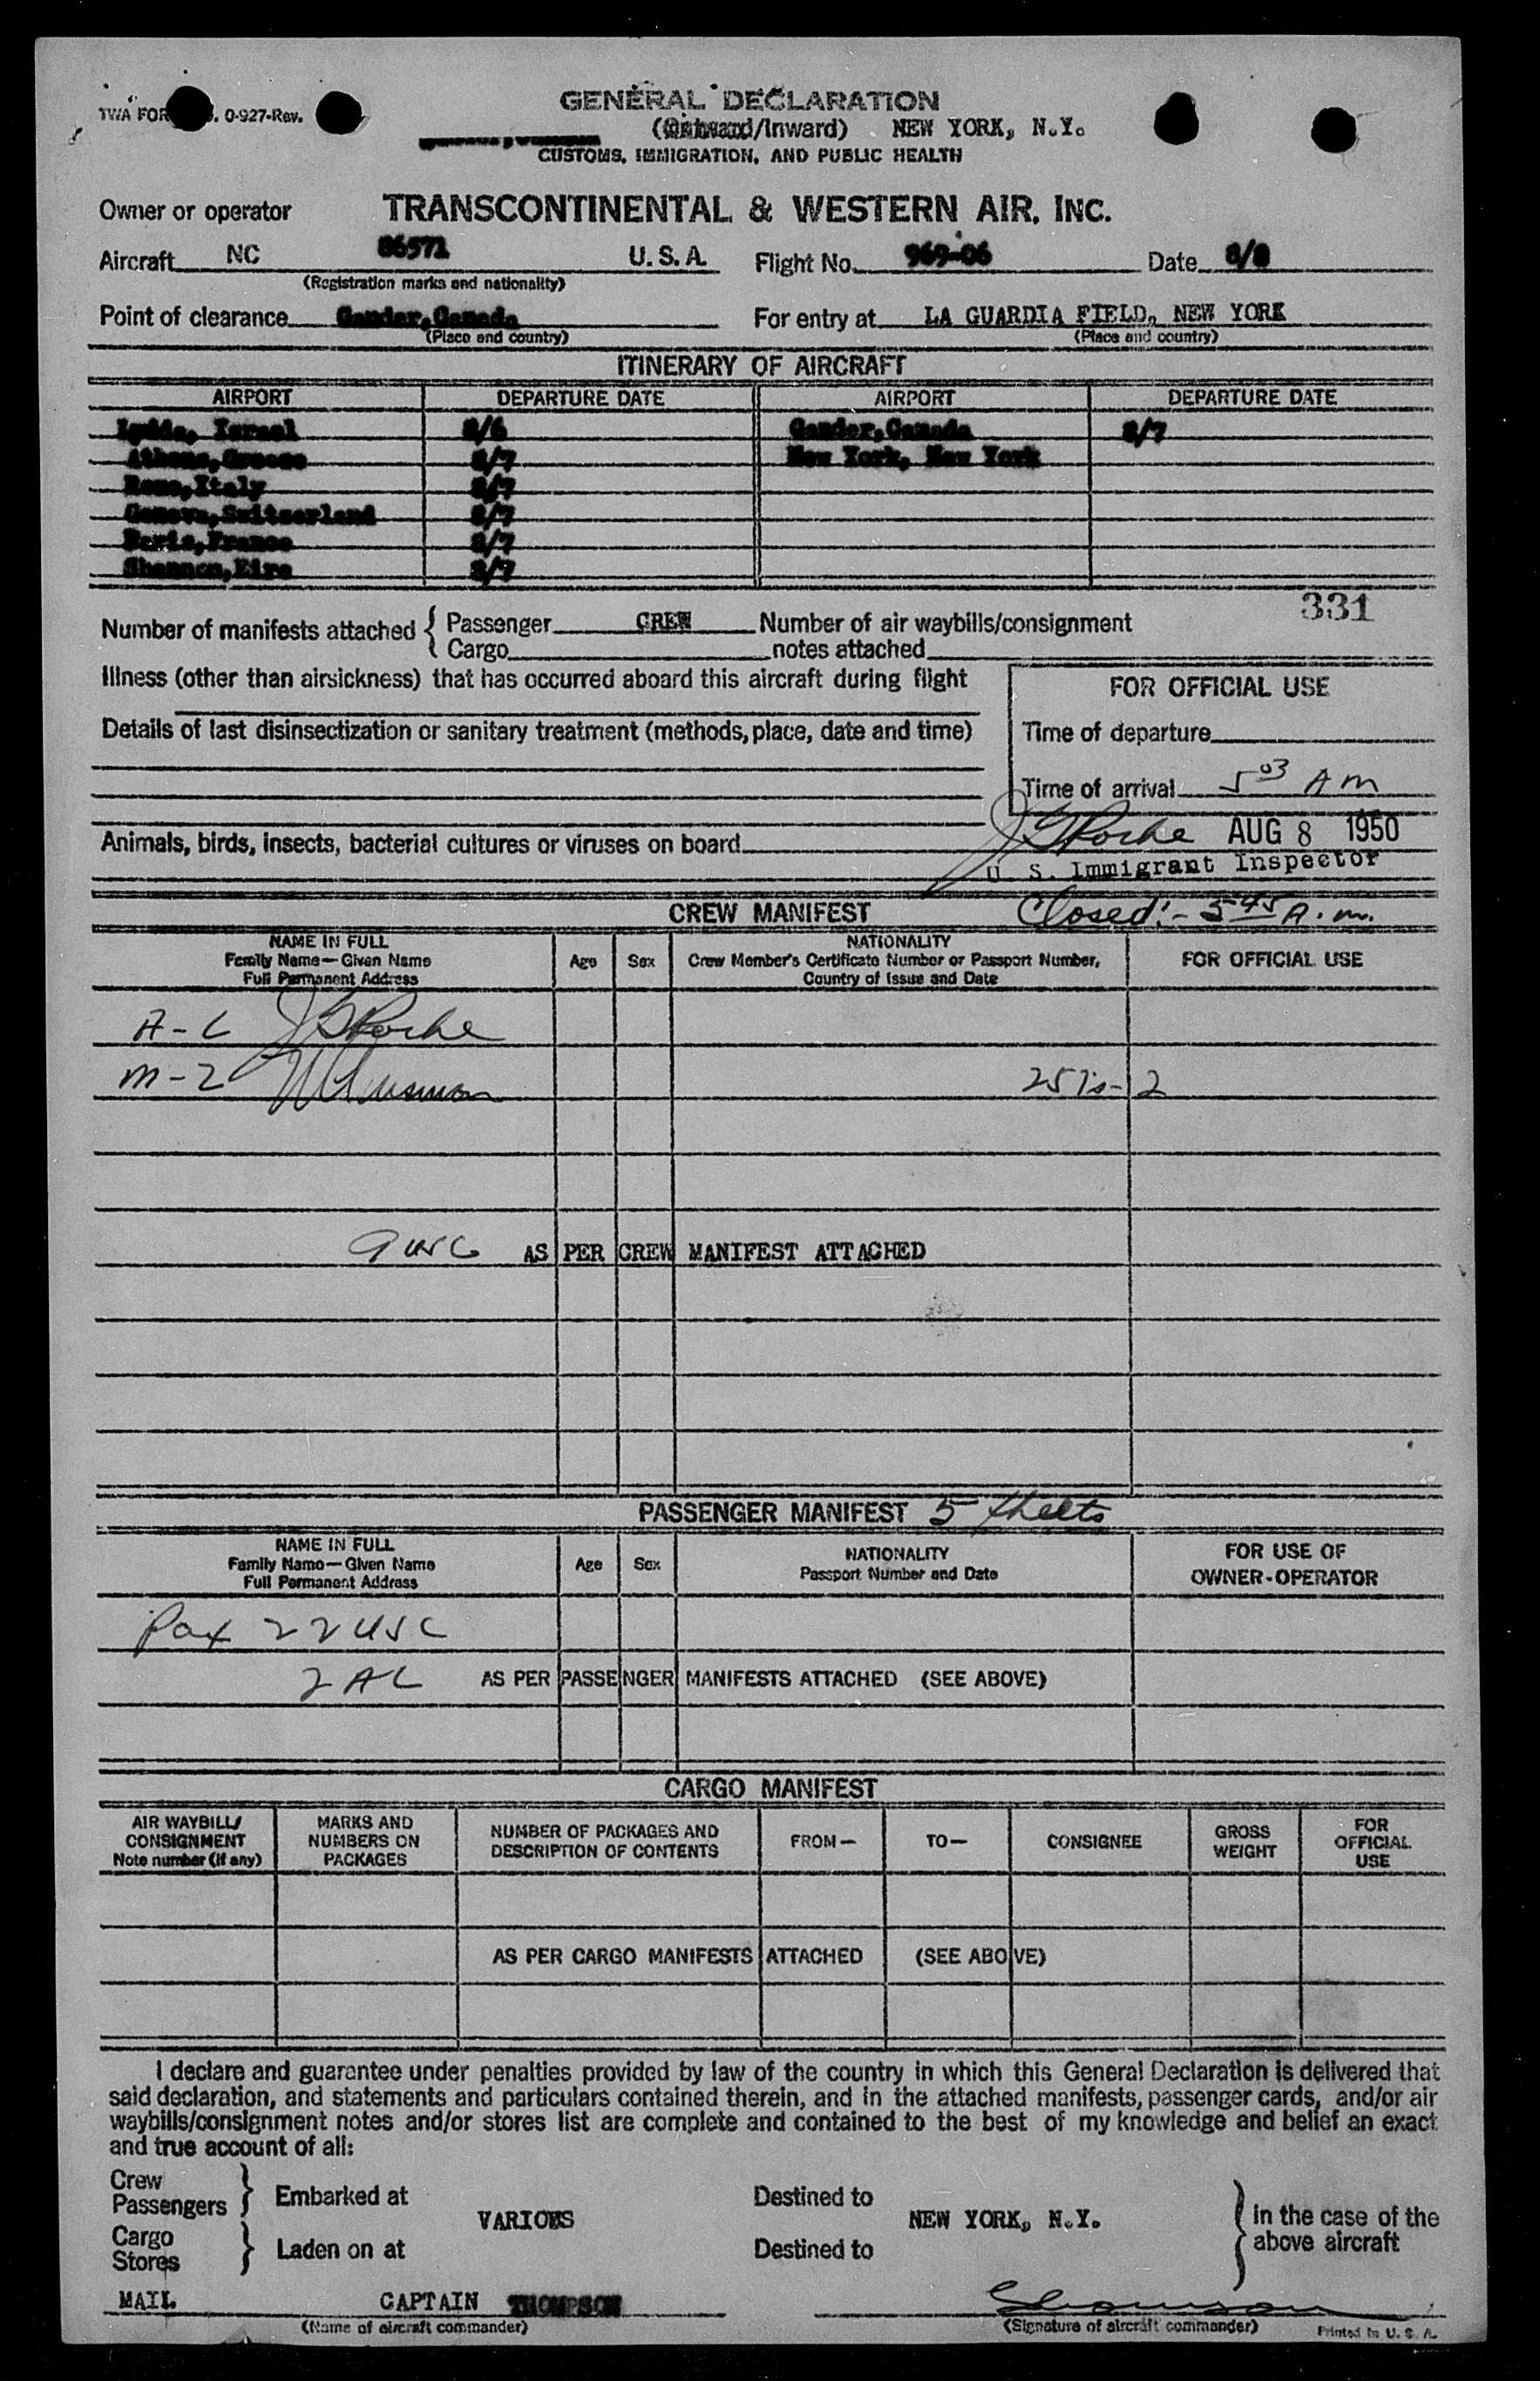 TWA FOR . 0-927-Rev.
GENERAL DECLARATION
(Outward/Inward) NEW YORK, N.Y.
CUSTOMS, IMMIGRATION, AND PUBLIC HEALTH
Owner or operator TRANSCONTINENTAL & WESTERN AIR, INC.
Aircraft NC 86571 U. S. A. Flight No. 969-06 Date 8/8
(Registration marks and nationality)
Point of clearance Gander, Canada For entry at LA GUARDIA FIELD, NEW YORK
(Place and country) (Place and country)
ITINERARY OF AIRCRAFT
AIRPORT DEPARTURE DATE AIRPORT DEPARTURE DATE
Lydda, Israel 8/6 Gander, Canada 8/7
Athens, Greece 8/7 New York, New York
Rome, Italy 8/7
Geneva, Switzerland 8/7
Paris, France 8/7
Shannon, Eire 8/7
331
Number of manifests attached { Passenger CREW Number of air waybills/consignment
Cargo notes attached
Illness (other than airsickness) that has occurred aboard this aircraft during flight
FOR OFFICIAL USE
Details of last disinsectization or sanitary treatment (methods, place, date and time)
Time of departure
Time of arrival 5 03 AM
J Roche AUG 8 1950
Animals, birds, insects, bacterial cultures or viruses on board
U. S. Immigrant Inspector
CREW MANIFEST Closed:- 5 45 A.m.
NAME IN FULL
Family Name—Given Name
Full Permanent Address
Age Sex
NATIONALITY
Crew Member's Certificate Number or Passport Number,
Country of Issue and Date
FOR OFFICIAL USE
A-C J Roche
M-2
2
9 USC AS PER CREW MANIFEST ATTACHED
PASSENGER MANIFEST 5 sheets
NAME IN FULL
Family Name—Given Name
Full Permanent Address
Age Sex
NATIONALITY
Passport Number and Date
FOR USE OF
OWNER-OPERATOR
Pax 22 USC
2 AC AS PER PASSENGER MANIFESTS ATTACHED (SEE ABOVE)
CARGO MANIFEST
AIR WAYBILL/
CONSIGNMENT
Note number (if any)
MARKS AND
NUMBERS ON
PACKAGES
NUMBER OF PACKAGES AND
DESCRIPTION OF CONTENTS
FROM—
TO—
CONSIGNEE
GROSS
WEIGHT
FOR
OFFICIAL
USE
AS PER CARGO MANIFESTS ATTACHED (SEE ABOVE)
I declare and guarantee under penalties provided by law of the country in which this General Declaration is delivered that
said declaration, and statements and particulars contained therein, and in the attached manifests, passenger cards, and/or air
waybills/consignment notes and/or stores list are complete and contained to the best of my knowledge and belief an exact
and true account of all:
Crew
Passengers } Embarked at Destined to
VARIOUS NEW YORK, N.Y. } in the case of the
Cargo above aircraft
Stores } Laden on at Destined to
MAIL CAPTAIN THOMPSON
(Name of aircraft commander) (Signature of aircraft commander) Printed in U. S. A.